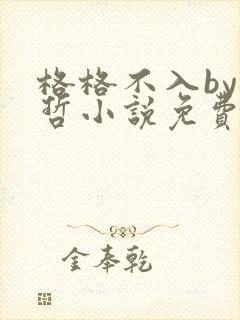 格格不入by
哲小說免費
金奉乾